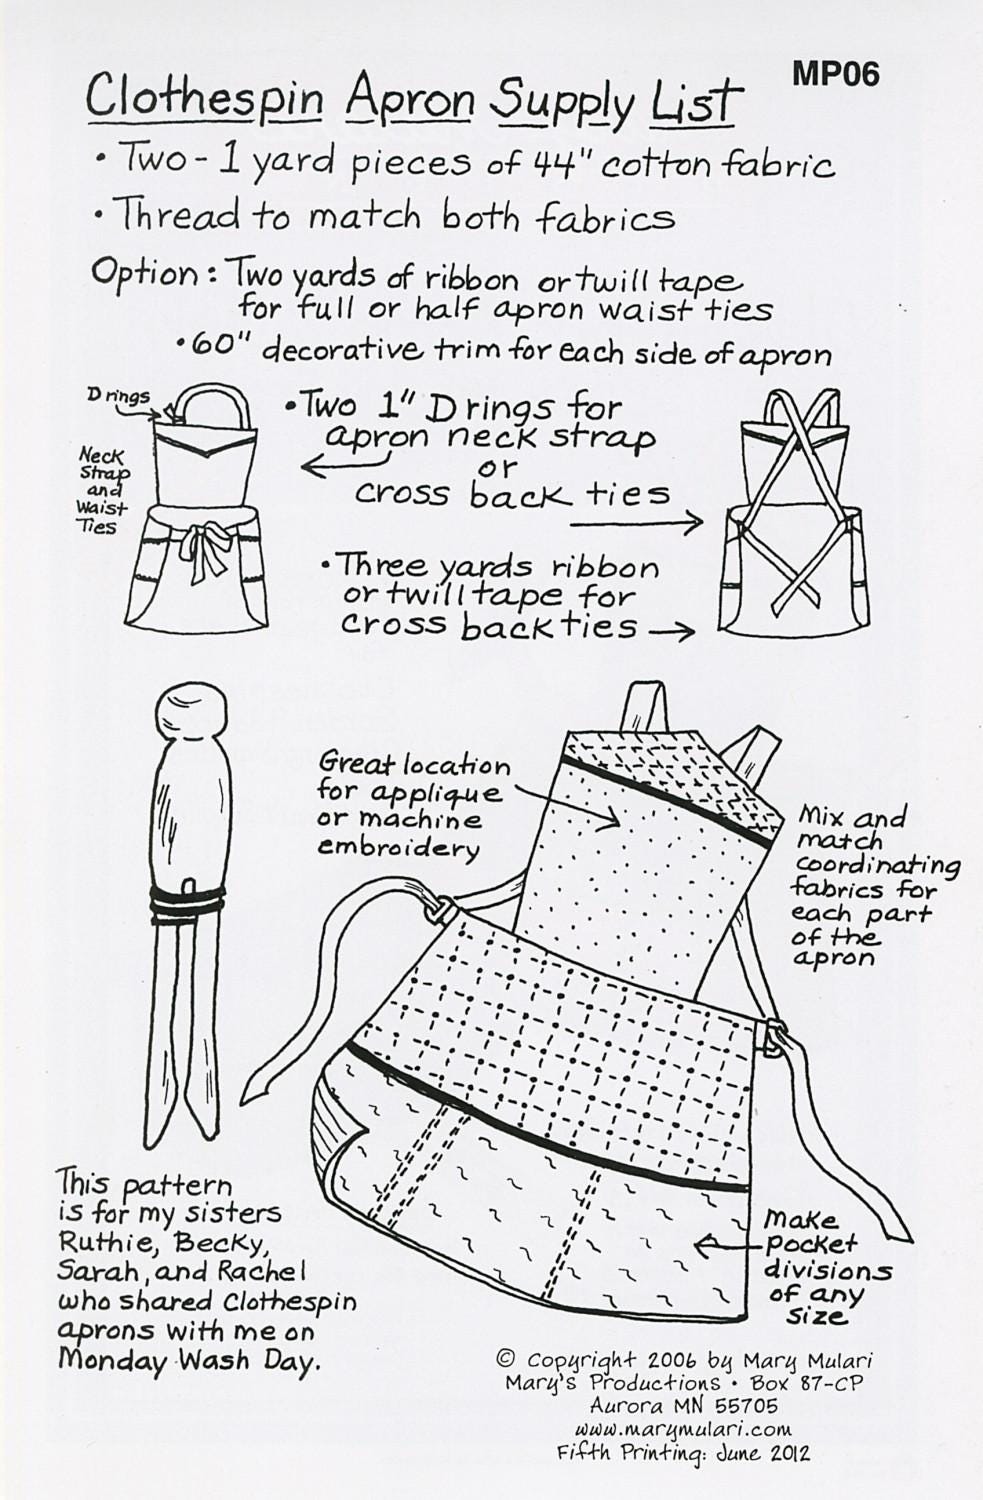 MP06
Clothespin Apron Supply List
• Two - 1 yard pieces of 44" cotton fabric
• Thread to match both fabrics
Option: Two yards of ribbon or twill tape
for full or half apron waist ties
• 60" decorative trim for each side of apron
D rings
Neck
Strap
and
Waist
Ties
• Two 1" D rings for
apron neck strap
or
cross back ties
• Three yards ribbon
or twill tape for
cross back ties
Great location
for applique
or machine
embroidery
Mix and
match
coordinating
fabrics for
each part
of the
apron
Make
pocket
divisions
of any
size
This pattern
is for my sisters
Ruthie, Becky,
Sarah, and Rachel
who shared Clothespin
aprons with me on
Monday Wash Day.
© Copyright 2006 by Mary Mulari
Mary's Productions • Box 87-CP
Aurora MN 55705
www.marymulari.com
Fifth Printing: June 2012